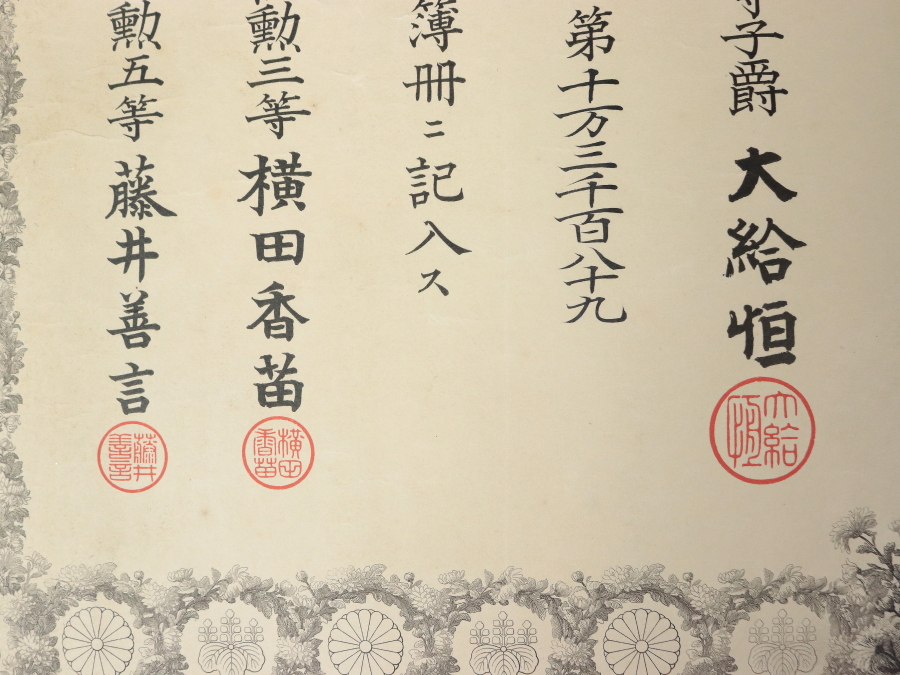 子爵 大給恒
大給恒
第十万三千百八十九
簿冊ニ記入ス
勲三等 横田香苗
横田香苗
勲五等 藤井善言
藤井善言